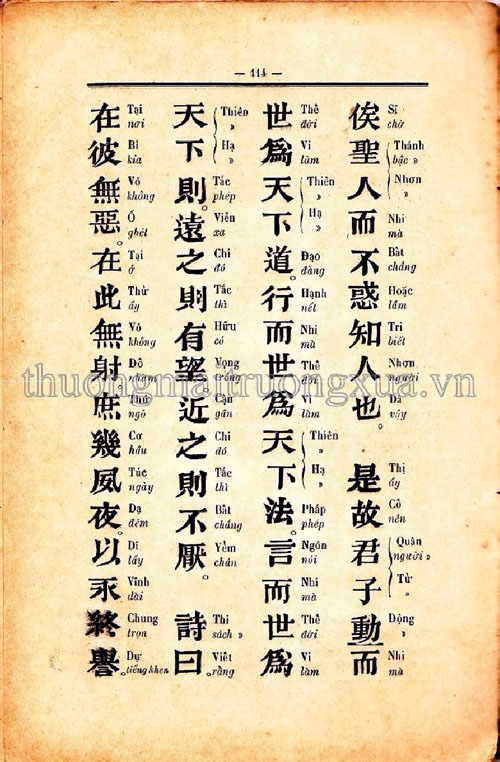 — 114 —
俟聖人而不惑知人也。是故君子動而
Sĩ chờ
Thánh bậc »
Nhơn »
Nhi mà
Bất chẳng
Hoặc lầm
Tri biết
Nhơn người
Dã vậy
Thị ấy
Cố nên
Quân người »
Tử »
Động »
Nhi mà
世爲天下道。行而世爲天下法。言而世爲
Thế đời
Vi làm
Thiên »
Hạ »
Đạo đàng
Hạnh nết
Nhi mà
Thế đời
Vi làm
Thiên »
Hạ »
Pháp phép
Ngôn nói
Nhi mà
Thế đời
Vi làm
天下則。遠之則有望近之則不厭。詩曰。
Thiên »
Hạ »
Tắc phép
Viễn xa
Chi đó
Tắc thì
Hữu có
Vọng trông
Cận gần
Chi đó
Tắc thì
Bất chẳng
Yếm chán
Thi sách »
Viết rằng
在彼無惡。在此無射庶幾夙夜。以永終譽。
Tại nơi
Bỉ kia
Vô không
Ố ghét
Tại ở
Thử ấy
Vô không
Đố nhàm
Thứ ngỏ
Cơ hầu
Túc ngày
Dạ đêm
Dĩ lấy
Vĩnh dài
Chung trọn
Dự tiếng khen
thuongmaitruongxua.vn